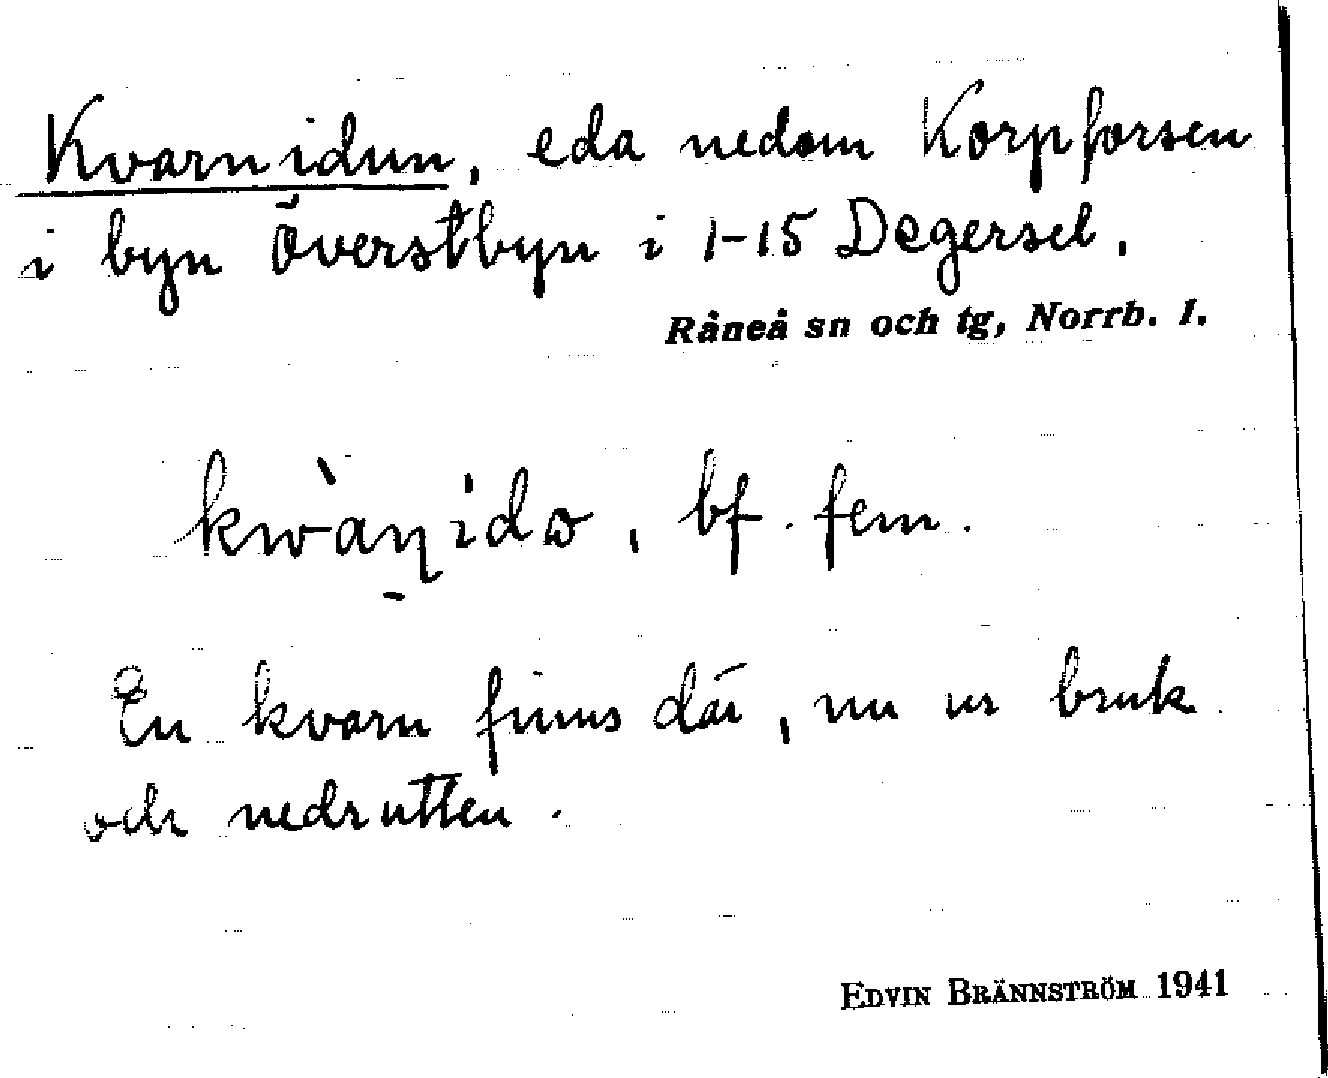 Kvarnidun, eda nedom Korpforsen
i byn Överstbyn i 1-15 Degersel.
Råneå sn och tg, Norrb. l.
bf. fem.
En kvarn finns där, nu ur bruk
och nedrutten.
EDVIN BRÄNNSTRÖM 1941